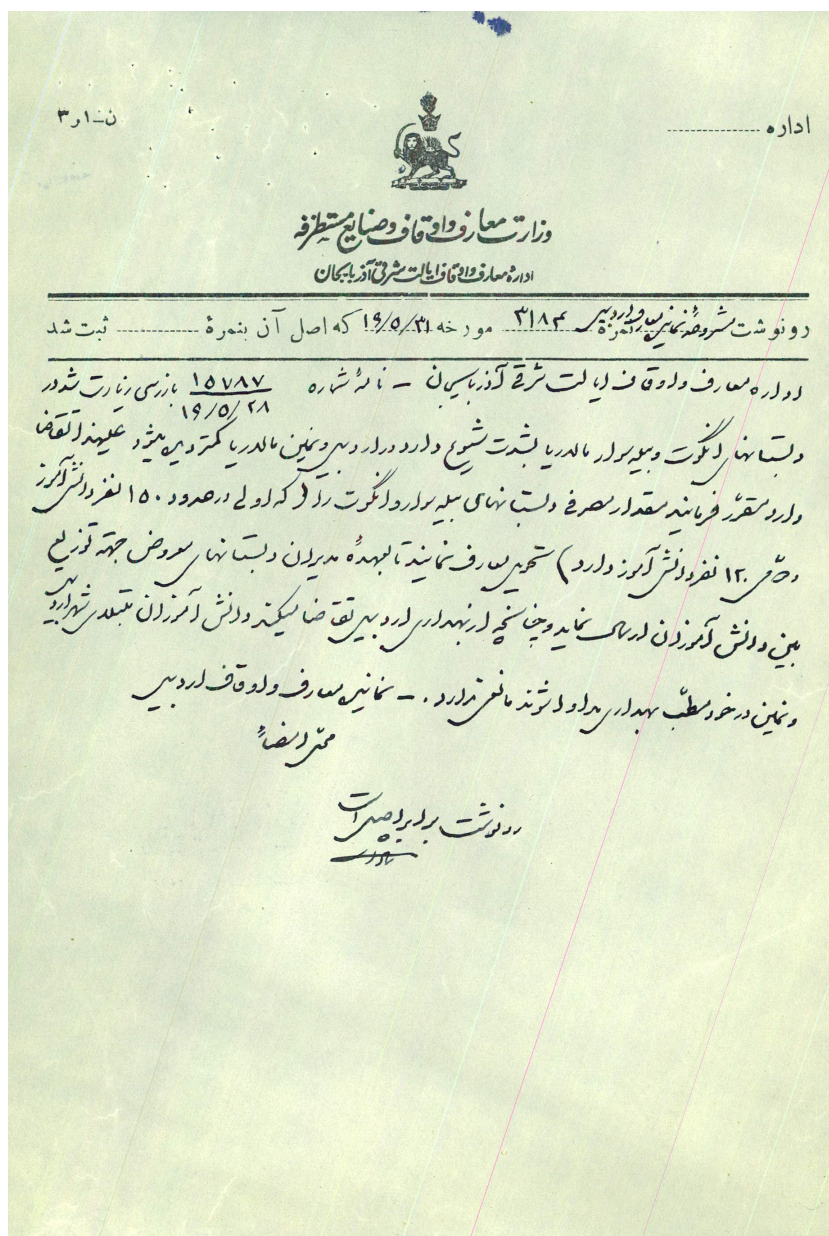 ن-۱و۳
اداره ................
وزارت معارف و اوقاف و صنایع مستظرفه
ادارهٔ معارف و اوقاف ایالت شرقی آذربایجان
رونوشت مشروحهٔ نمایندگی معارف اردبیل نمرهٔ ۳۱۸۴ مورخه ۱۹/۵/۳۱ که اصل آن بنمرهٔ ................ ثبت شد
اداره معارف و اوقاف ایالت شرقی آذربایجان - نامهٔ شماره ۱۵۷۸۷ بازرسی زیارت شد در
۱۹/۵/۲۸
دبستانهای انگوت و بیله سوار مالاریا بشدت شیوع دارد در اردبیل و نمین مالاریا کمتر دیده میشود علیهذا تقاضا
دارد مقرر فرمایند مقدار مصرفی دبستانهای بیله سوار و انگوت را (که اولی در حدود ۱۵۰ نفر دانش آموز
و دومی ۱۲۰ نفر دانش آموز دارد) تحویل معارف نمایند تا بعهدهٔ مدیران دبستانهای معروض جهة توزیع
بین دانش آموزان ارسال نماید و چنانچه از بهداری اردبیل تقاضا میکند دانش آموزان مبتلای شهر اردبیل
و نمین در خود مطب بهداری مداوا شوند مانعی ندارد. - نماینده معارف و اوقاف اردبیل
محل امضاء
رونوشت برابر اصل است